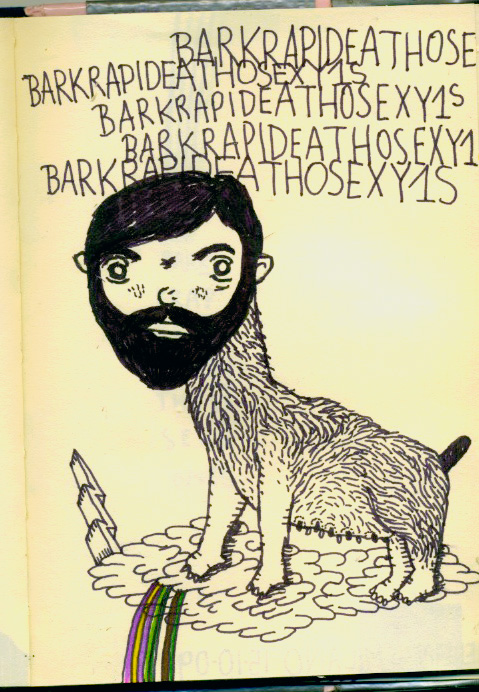 BARKRAPIDEATHOSE
BARKRAPIDEATHOSEXY1S
BARKRAPIDEATHOSEXY1S
BARKRAPIDEATHOSEXY1
BARKRAPIDEATHOSEXY1S